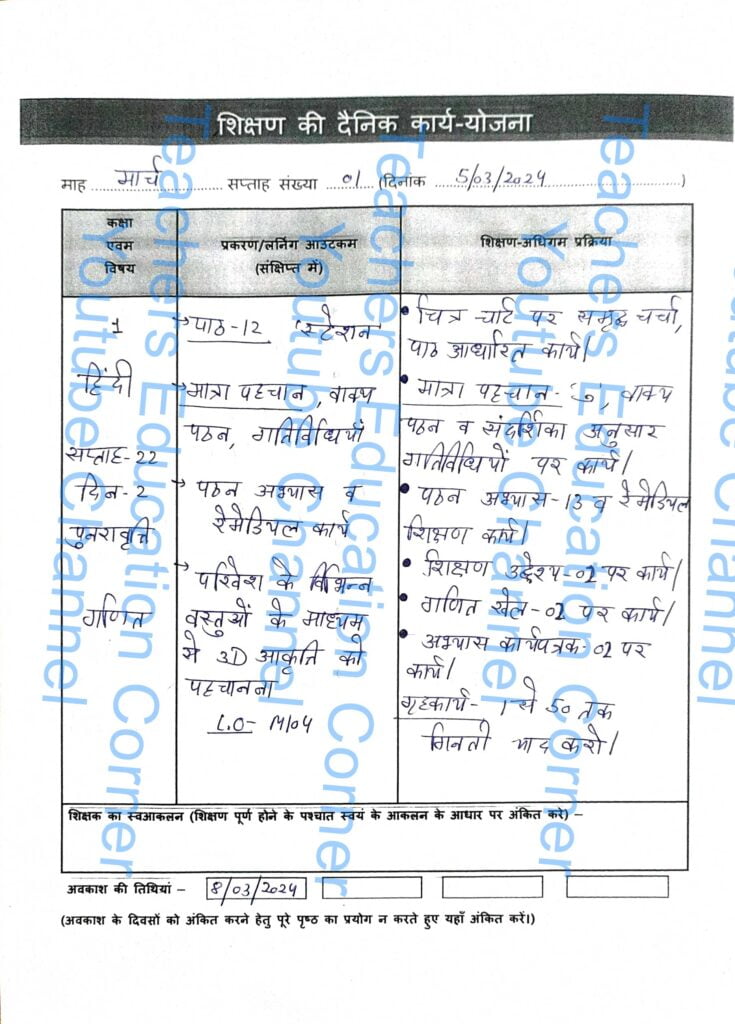 शिक्षण की दैनिक कार्य-योजना
माह मार्च सप्ताह संख्या 01 (दिनांक 5/03/2024)
कक्षा
एवम
विषय
प्रकरण/लर्निंग आउटकम
(संक्षिप्त में)
शिक्षण-अधिगम प्रक्रिया
1
हिंदी
सप्ताह-22
दिन-2
पुनरावृत्ति
गणित
→पाठ-12 'स्टेशन'
→मात्रा पहचान, वाक्य
पठन, गतिविधियाँ
→ पठन अभ्यास व
रेमेडियल कार्य
→ परिवेश के विभिन्न
वस्तुओं के माध्यम
से 3D आकृति को
पहचानना
L.O- M104
• चित्र चार्ट पर समृद्ध चर्चा,
पाठ आधारित कार्य।
• मात्रा पहचान- वाक्य
पठन व संदर्शिका अनुसार
गतिविधियों पर कार्य।
• पठन अभ्यास-13 व रेमेडियल
शिक्षण कार्य।
• शिक्षण उद्देश्य-02 पर कार्य।
• गणित खेल-02 पर कार्य।
• अभ्यास कार्यपत्रक-02 पर
कार्य।
गृहकार्य- 1 से 50 तक
गिनती याद करो।
शिक्षक का स्वआकलन (शिक्षण पूर्ण होने के पश्चात स्वयं के आकलन के आधार पर अंकित करे) –
अवकाश की तिथियां – 8/03/2024
(अवकाश के दिवसों को अंकित करने हेतु पूरे पृष्ठ का प्रयोग न करते हुए यहाँ अंकित करें।)
Teachers Education Corner
Youtube Channel
Teachers Education Corner
Youtube Channel
Teachers Education Corner
Youtube Channel